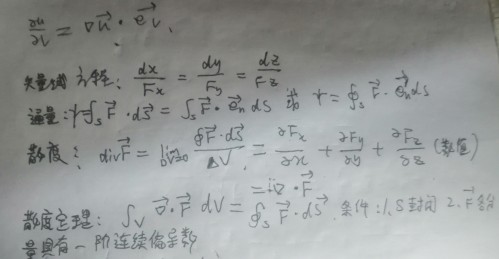 ∂u/∂l = ∇u⃗ · e⃗l、
矢量线方程: dx/Fx = dy/Fy = dz/Fz
通量: ψ=∫s F⃗ · dS⃗ = ∫s F⃗ · e⃗n dS 或 ψ = ∮s F⃗ · e⃗n dS
散度: divF⃗ = lim ΔV→0 ∮F⃗ · dS⃗ / ΔV = ∂Fx/∂x + ∂Fy/∂y + ∂Fz/∂z (数值)
= ∇ · F⃗
散度定理: ∫V ∇⃗ · F⃗ dV = ∮s F⃗ · dS⃗. 条件: 1. S封闭 2. F⃗
量具有一阶连续偏导数